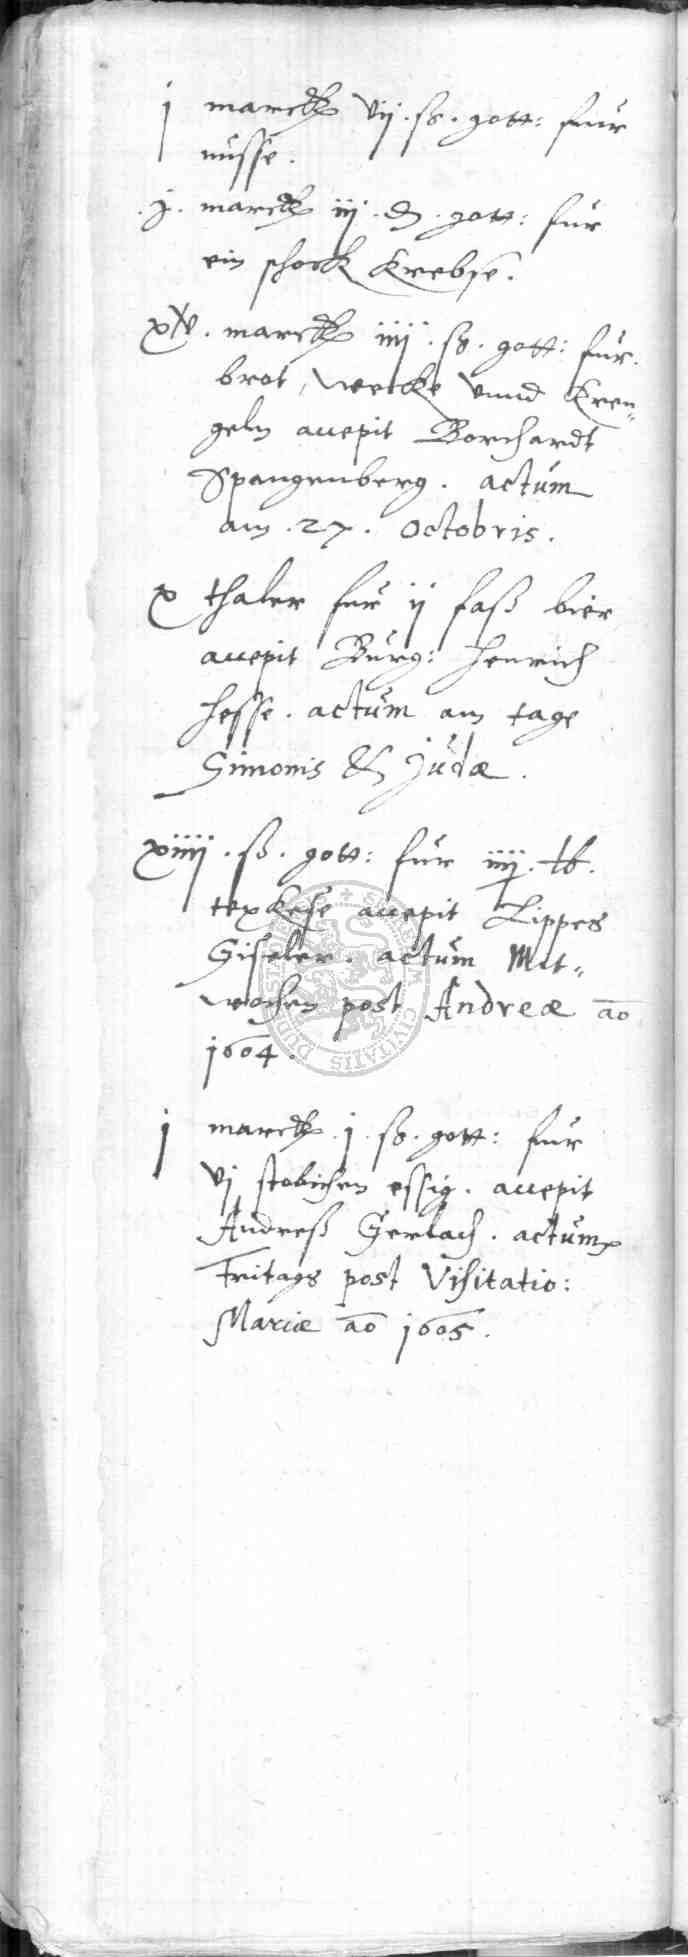 j marck vij . ß . gott: fur
nusse .
. j . marck iij . d . gott: fur
ein schock Krebse .
xv . marck iiij . ß . gott: fur
brot, wecke vnnd Kren=
geln accepit Borchardt
Spangenberg . actum
am . 27 . Octobris .
x thaler fur ij faß bier
accepit Burg: Henrich
Hesse . actum am tage
Simonis & Judæ .
xiiij . ß . gott: fur iiij . lb .
texkese accepit Lippes
Giseler . actum Mit=
wochen post Andreæ ao
1604 .
j marck . j . ß . gott: fur
vj stobichen essig . accepit
Andreß Gerlach . actum
Fritags post Visitatio:
Mariæ ao 1605 .
SIGILLUM CIVITATIS DUDERSTADT